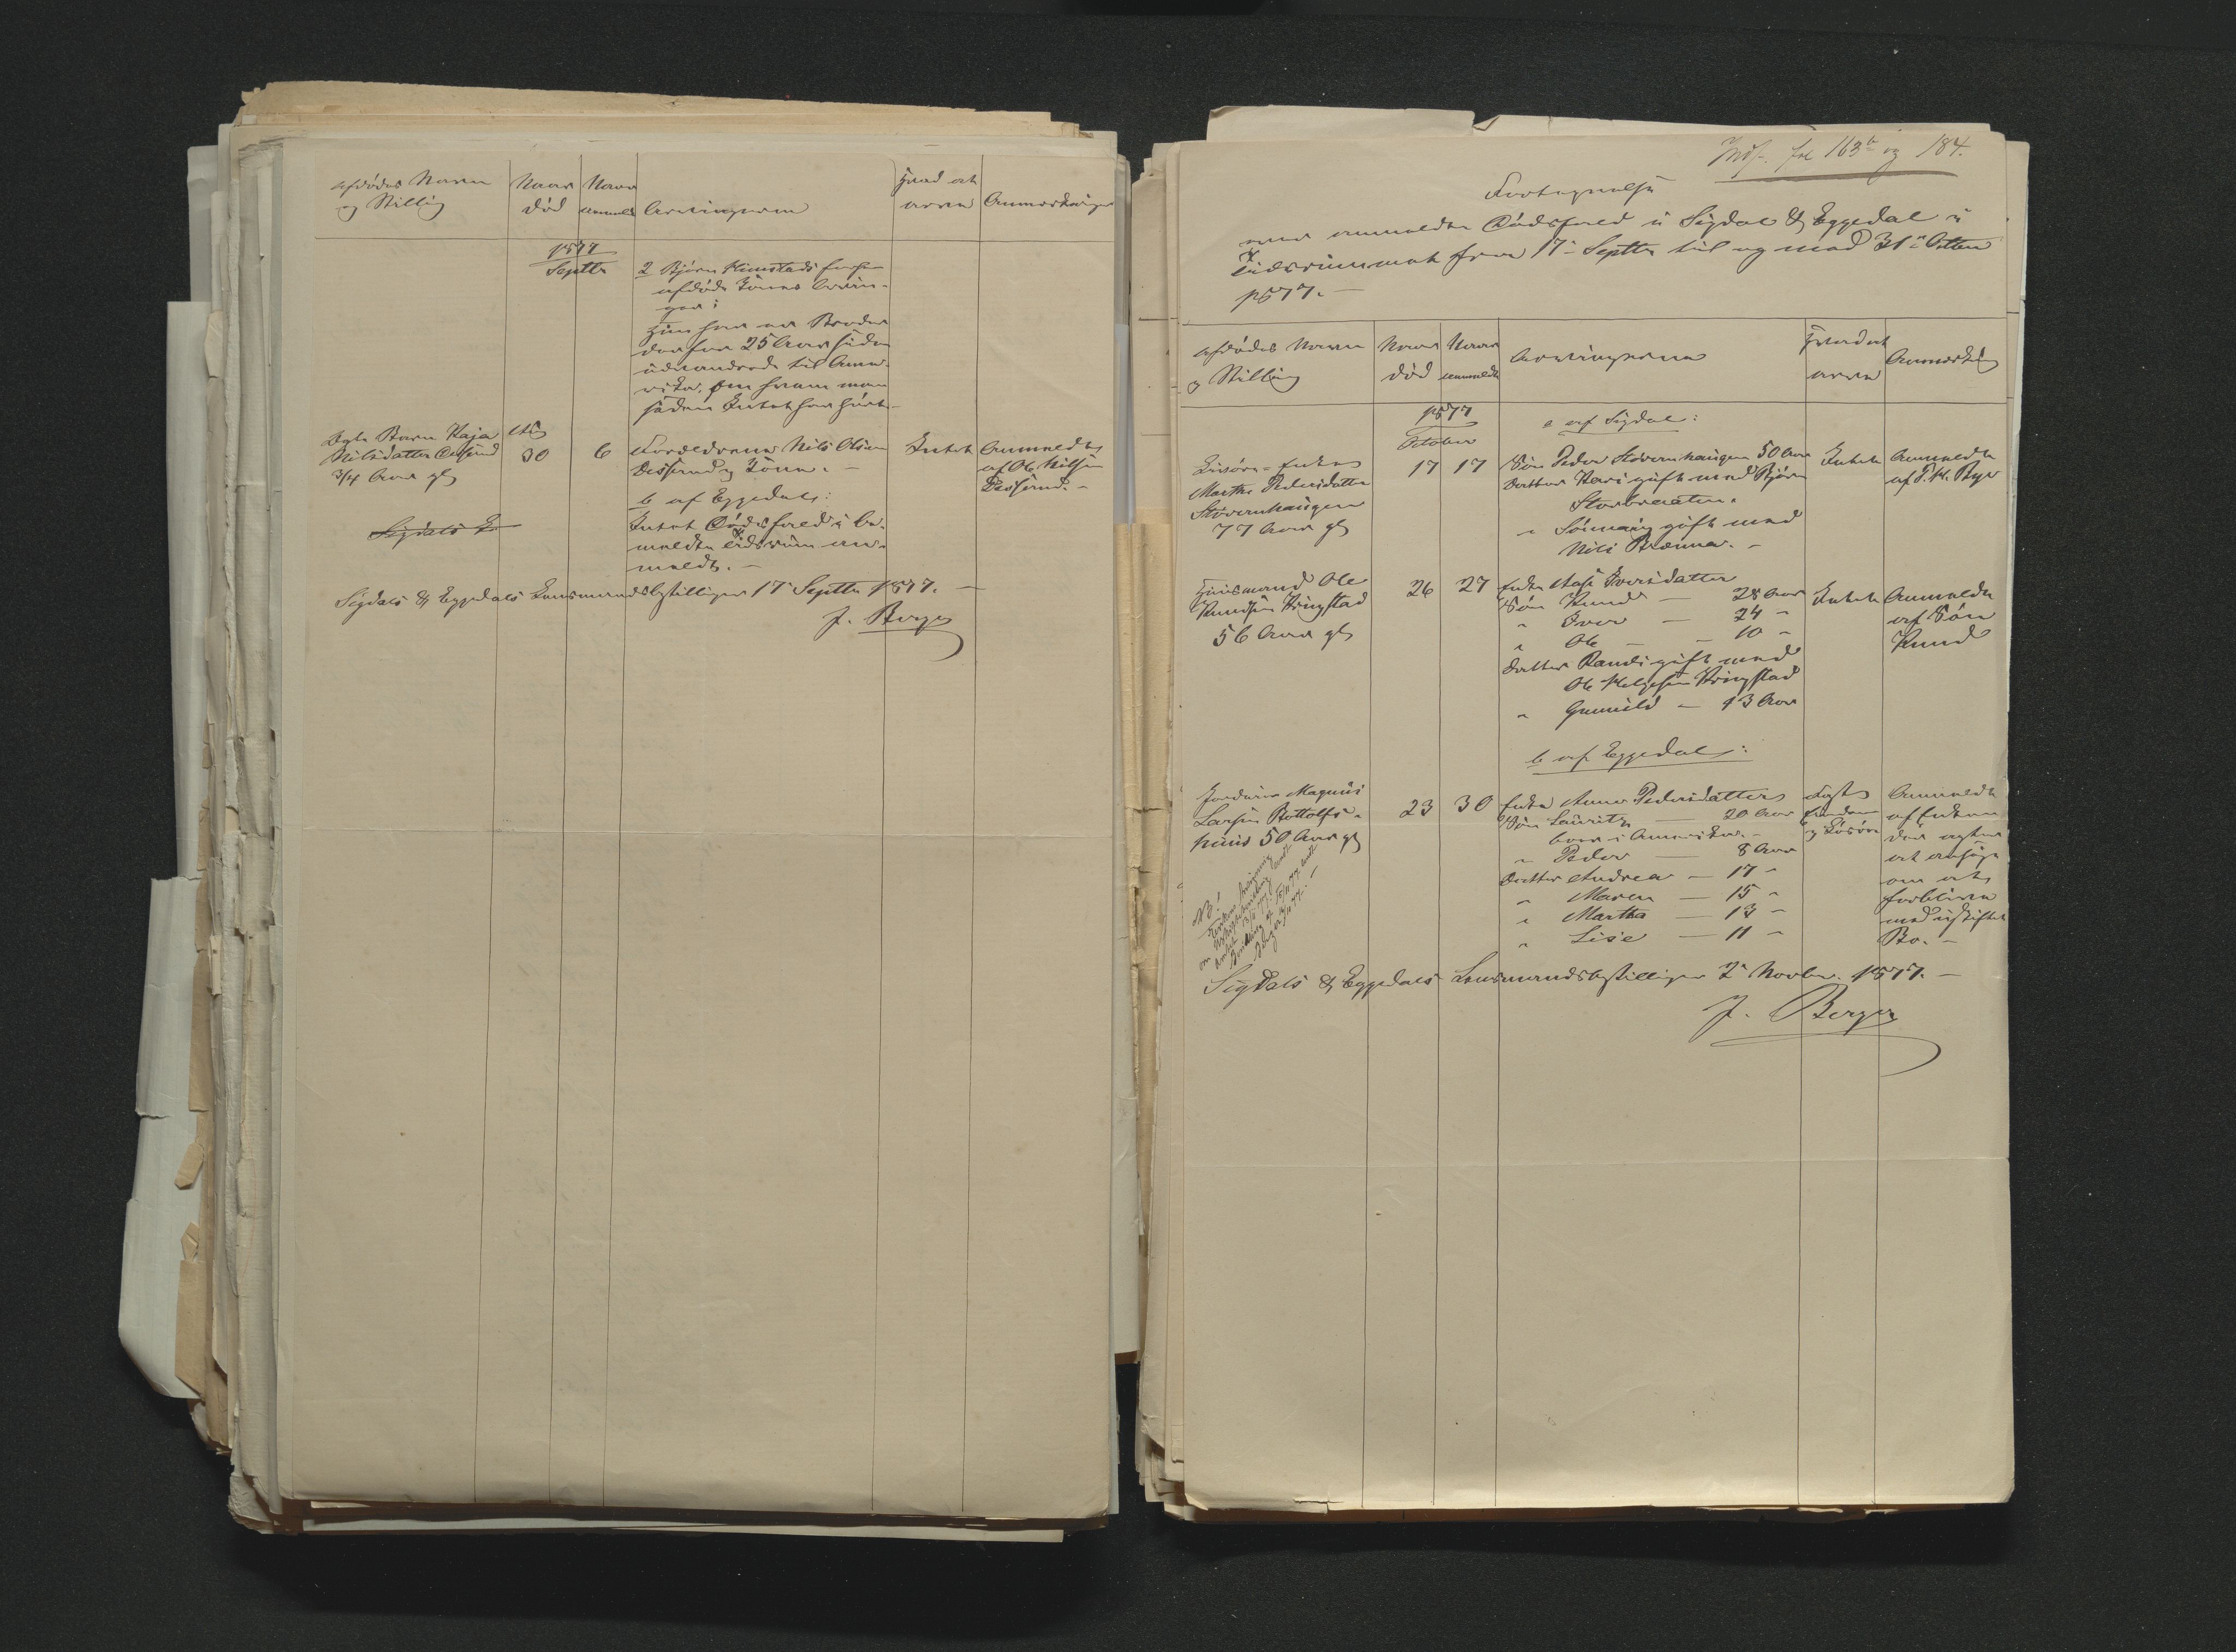 afdödes Navn
og Stilling
Naar
död
Naar
anmeldt
Arvingerne
Hvad at
arve
Anmærkninger
1877
Septbr
2 Björn
afdöde Söns Arvin-
ger:
Hun har en Broder
der for 25 Aar siden
udvandrede til Ame-
rika, om hvem man
siden Intet har hört.
Ægte Barn Kaja
Nilsdatter
3/4 Aar gl
Aug
30
6
Forældrene Nils Olsen
og Kone. -
Intet
Anmeldt
af Ole Nilsen
b af Eggedal:
Intet Dödsfald i be-
meldte Tidsrum an-
meldt. -
Sigdals
Sigdals & Eggedals Lensmandsbestilling 17 Septbr 1877. -
J. Berger
Indf. fol 163b og 184.
Fortegnelse
over anmeldte Dödsfald i Sigdal & Eggedal i
Tidsrummet fra 17 Septbr til og med 31 Octbr
1877. -
afdödes Navn
og Stilling
Naar
död
Naar
anmeldt
Arvingerne
Hvad at
arve
Anmærkng
1877
October
a af Sigdal:
Inderst-Enke
Marthe Pedersdatter
Stövernhaugen
77 Aar gl
17
17
Sön Peder Stövernhaugen 50 Aar
Datter Kari gift med Björn
Storbraaten.
" Sönnaug gift med
Nils Brænna. -
Intet
Anmeldt
af P. H. Bye
Huusmand Ole
Knudsen Kringstad
56 Aar gl
26
27
Enke Aase Iversdatter
Sön Knud - 28 Aar
" Iver - 24 -
" Ole - 10 -
Datter Randi gift med
Ole Helgesen Kringstad
" Gunnild - 13 Aar
Intet
Anmeldt
af Sön
Knud
b af Eggedal:
Magnus
Larsen
50 Aar gl
23
30
Enke Anne Pedersdatter
Sön Lauritz - 20 Aar
boer i Amerika. -
" Peder - 8 Aar
Datter Andrea - 17 -
" Maren - 15 -
" Martha - 13 -
" Lise - 11 -
og Lösöre
Anmeldt
af Enken
der agter
at ansöge
om at
forblive
med uskiftet
Bo. -
NB!
Sigdals & Eggedals Lensmandsbestilling 2 Novbr. 1877. -
J. Berger